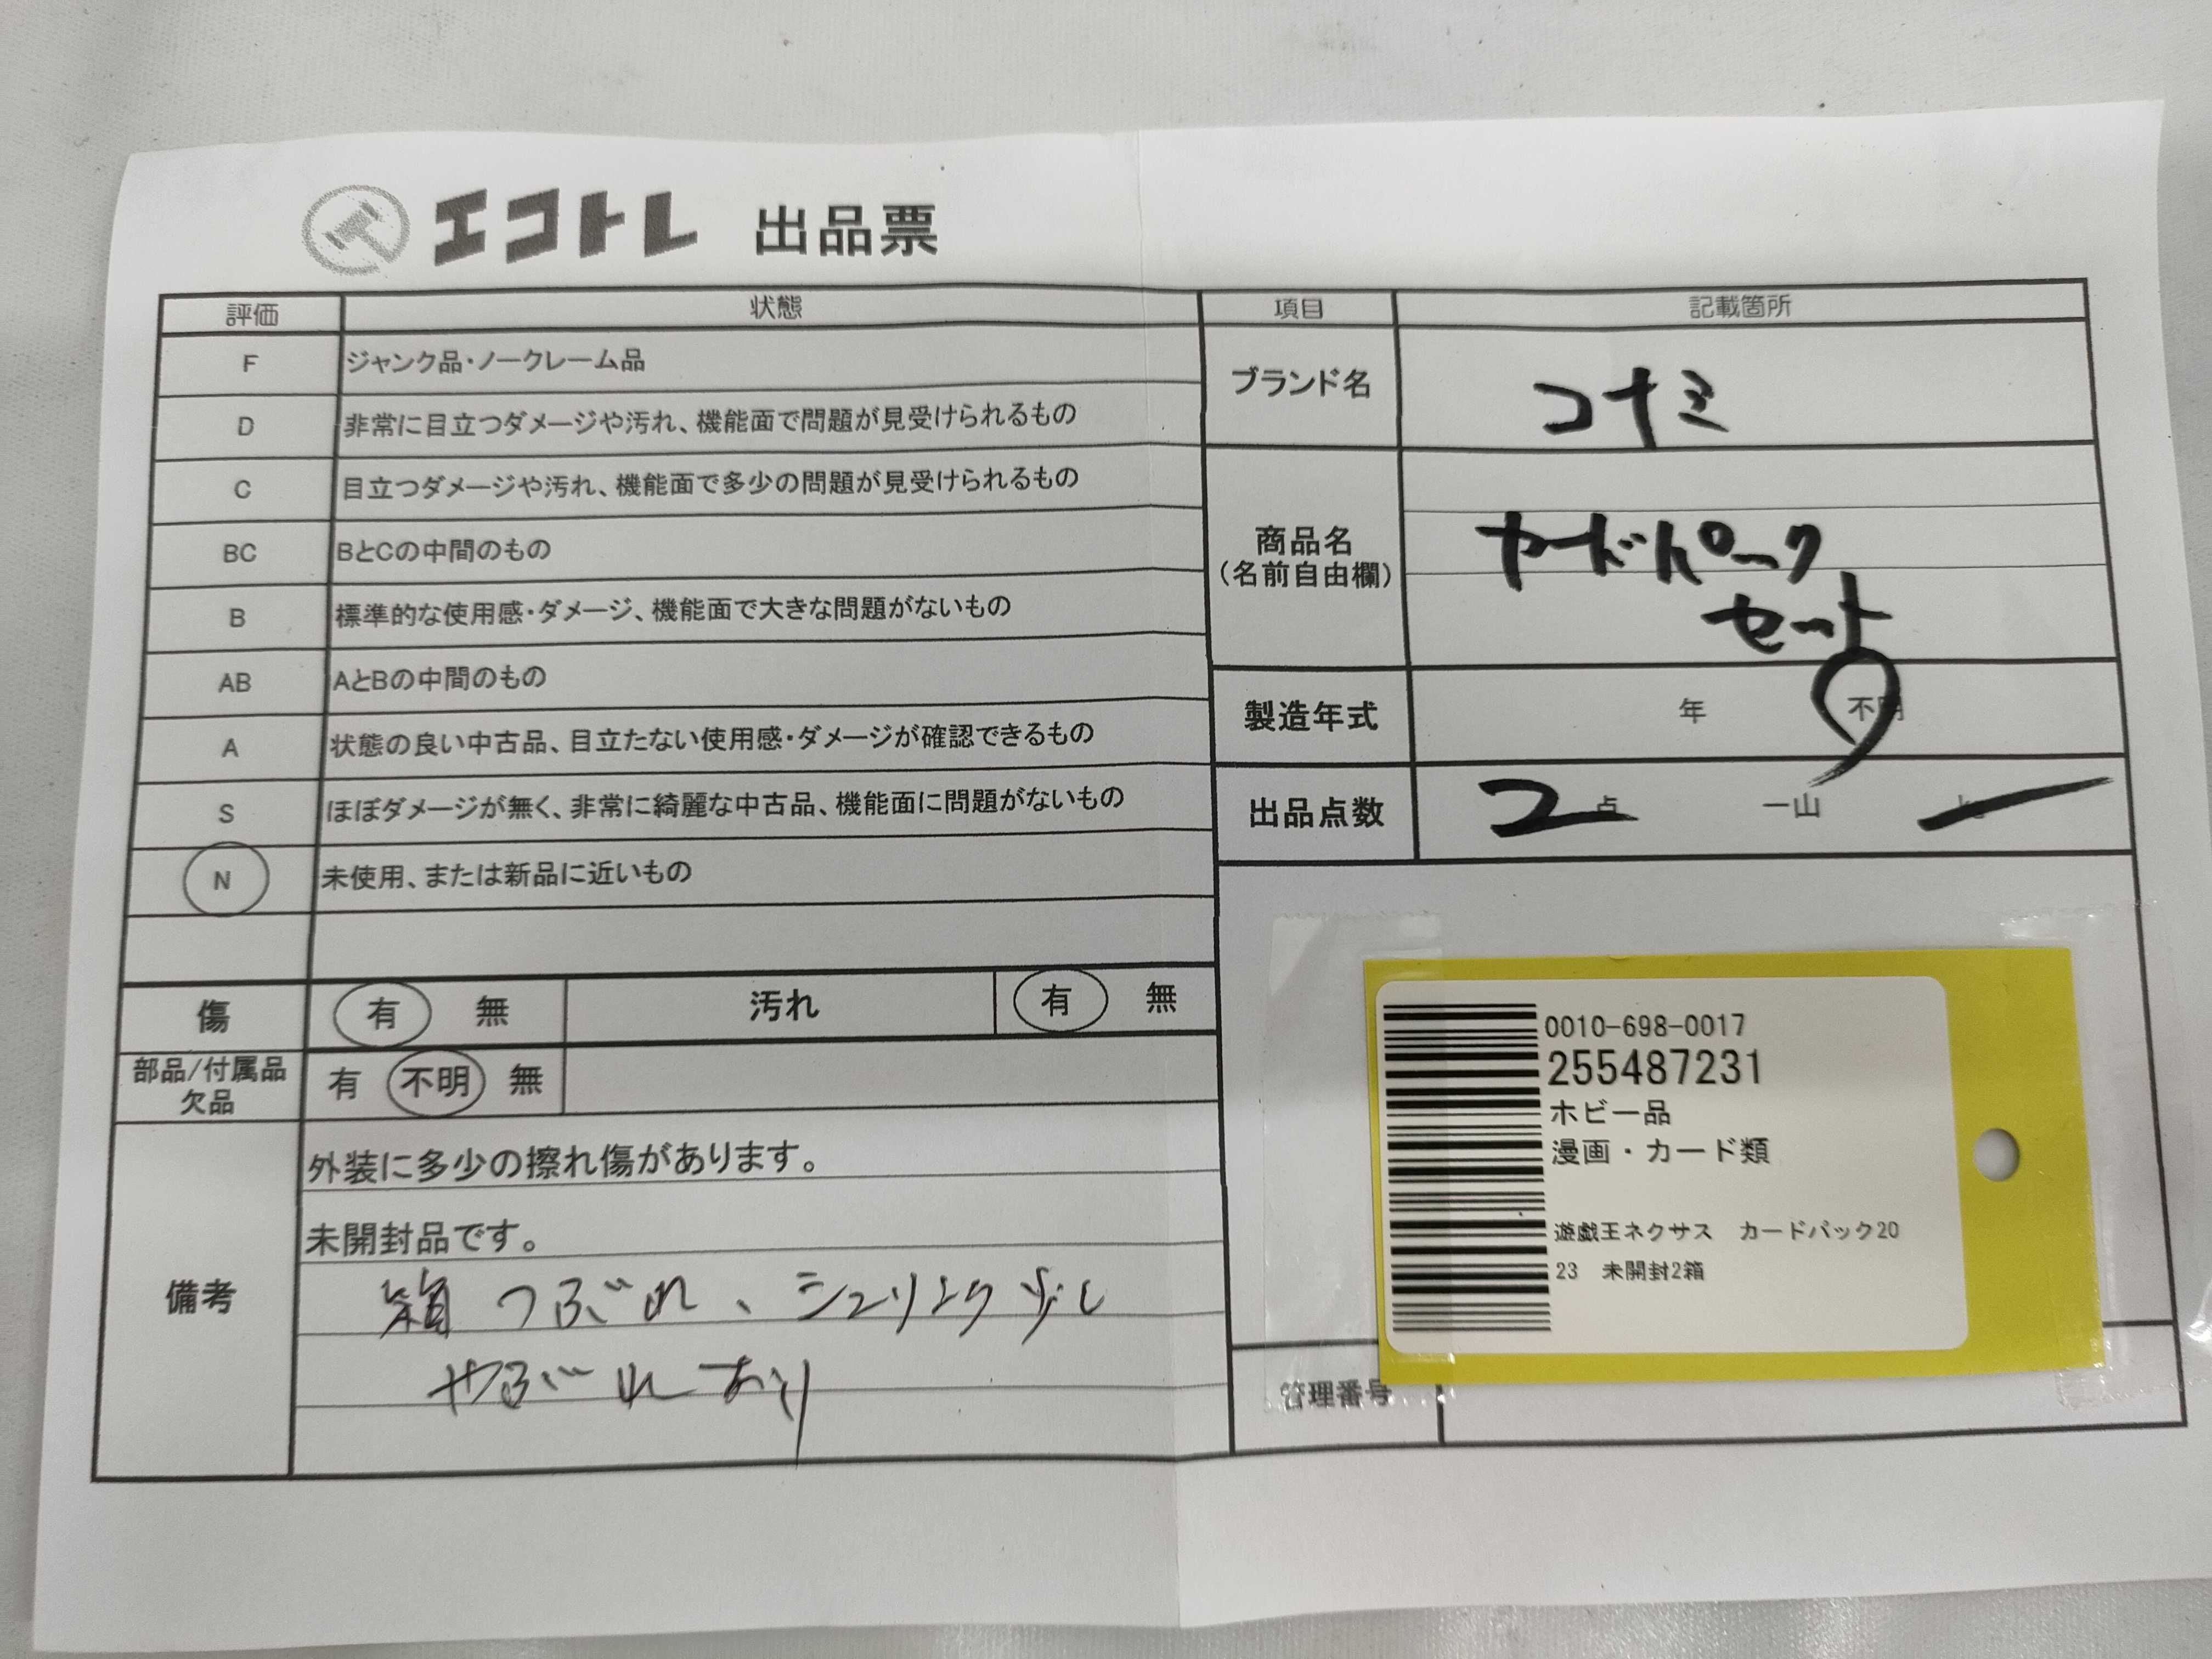 エコトレ 出品票
評価 状態
F ジャンク品・ノークレーム品
D 非常に目立つダメージや汚れ、機能面で問題が見受けられるもの
C 目立つダメージや汚れ、機能面で多少の問題が見受けられるもの
BC BとCの中間のもの
B 標準的な使用感・ダメージ、機能面で大きな問題がないもの
AB AとBの中間のもの
A 状態の良い中古品、目立たない使用感・ダメージが確認できるもの
S ほぼダメージが無く、非常に綺麗な中古品、機能面に問題がないもの
N 未使用、または新品に近いもの
傷 有 無 汚れ 有 無
部品/付属品
欠品 有 不明 無
備考
外装に多少の擦れ傷があります。
未開封品です。
箱つぶれ、シュリンク少し
やぶれあり
項目 記載箇所
ブランド名 コナミ
商品名
(名前自由欄)
カードパック
セット
製造年式 年 不明
出品点数 2 点 一山
0010-698-0017
255487231
ホビー品
漫画・カード類
遊戯王ネクサス カードパック20
23 未開封2箱
管理番号